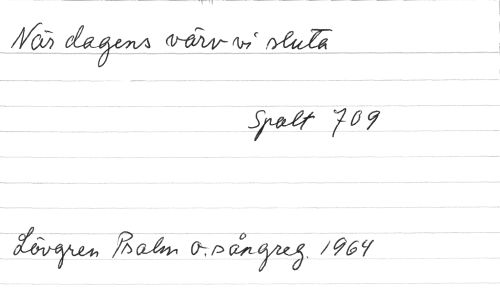 När dagens värv vi sluta
Spalt 709
Lövgren Psalm o. sångreg. 1964